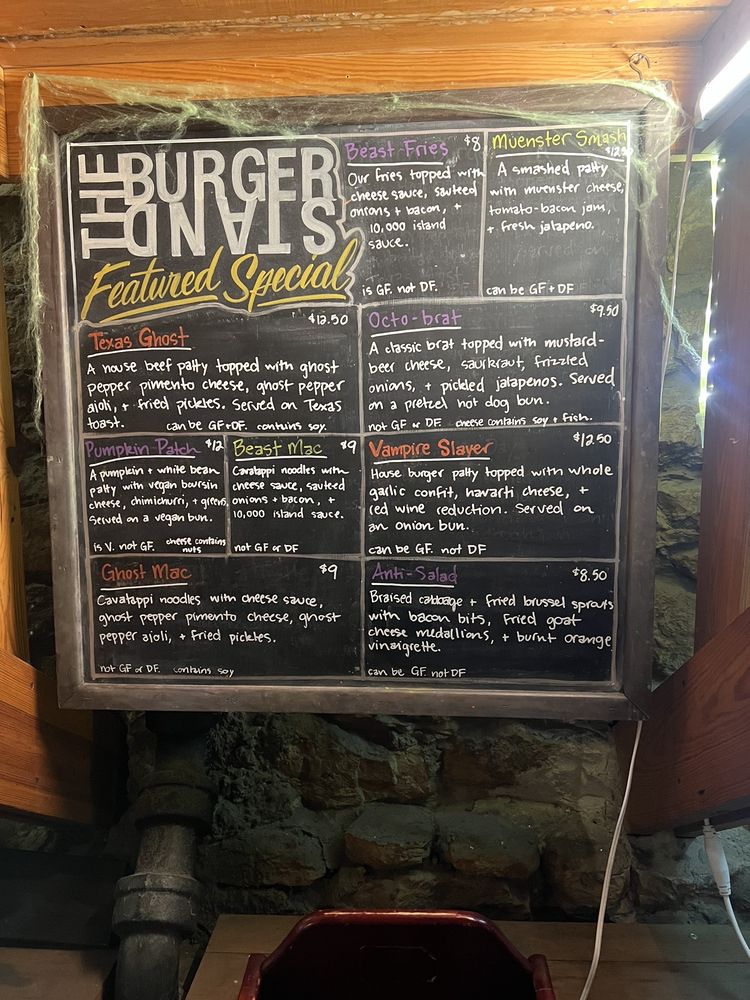 THE BURGER
STAND
Featured Special
Beast Fries $8
Our fries topped with
cheese sauce, sauteed
onions + bacon, +
10,000 island
sauce.
is GF. not DF.
Muenster Smash
A smashed patty
with muenster cheese,
tomato-bacon jam,
+ fresh jalapeno.
can be GF + DF
Texas Ghost $12.50
A house beef patty topped with ghost
pepper pimento cheese, ghost pepper
aioli, + fried pickles. Served on Texas
toast. can be GF+DF. contains soy.
Octo-brat $9.50
A classic brat topped with mustard-
beer cheese, saurkraut, frizzled
onions, + pickled jalapenos. Served
on a pretzel hot dog bun.
not GF or DF. cheese contains soy + fish.
Pumpkin Patch $12
A pumpkin + white bean
patty with vegan boursin
cheese, chimichurri, + greens.
Served on a vegan bun.
is V. not GF. cheese contains
nuts
Beast Mac $9
Cavatappi noodles with
cheese sauce, sauteed
onions + bacon, +
10,000 island sauce.
not GF or DF
Vampire Slayer $12.50
House burger patty topped with whole
garlic confit, havarti cheese, +
red wine reduction. Served on
an onion bun.
can be GF. not DF
Ghost Mac $9
Cavatappi noodles with cheese sauce,
ghost pepper pimento cheese, ghost
pepper aioli, + fried pickles.
not GF or DF. contains soy
Anti-Salad $8.50
Braised cabbage + fried brussel sprouts
with bacon bits, fried goat
cheese medallions, + burnt orange
vinaigrette.
can be GF. not DF